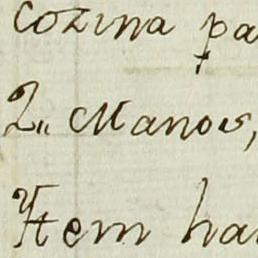 cozina pa
2,, Manos,
Item ha